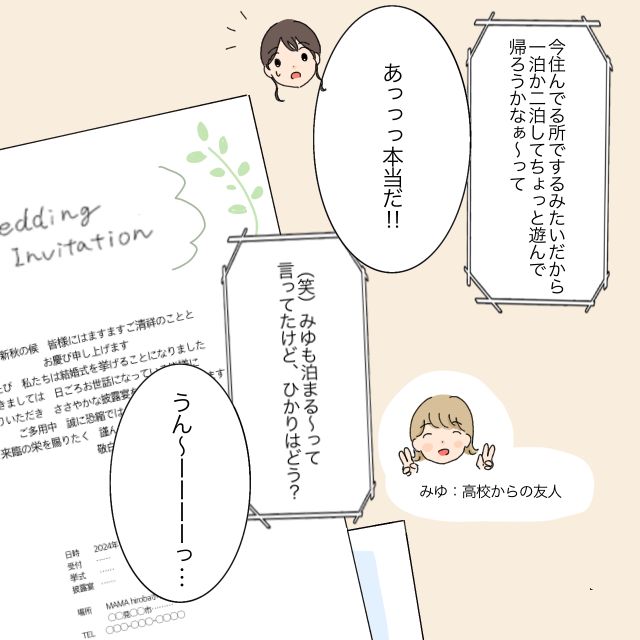 今住んでる所でするみたいだから
一泊か二泊してちょっと遊んで
帰ろうかなぁ〜って
あっっっ本当だ!!
(笑)みゆも泊まる〜って
言ってたけど、ひかりはどう?
うん〜ーーーーっ…
みゆ：高校からの友人
edding
Invitation
新秋の候 皆様にはますますご清祥のことと
お慶び申し上げます
び 私たちは結婚式を挙げることになりました
きましては 日ごろお世話になっている
いただき ささやかな披露宴
ご多用中 誠に恐縮では
来臨の栄を賜りたく 謹ん
敬
日時 2024年
受付 ……
挙式 ……
披露宴 ……
場所 MAMA hiroba
〇〇県〇〇市………
TEL 〇〇〇-〇〇〇-〇〇〇〇